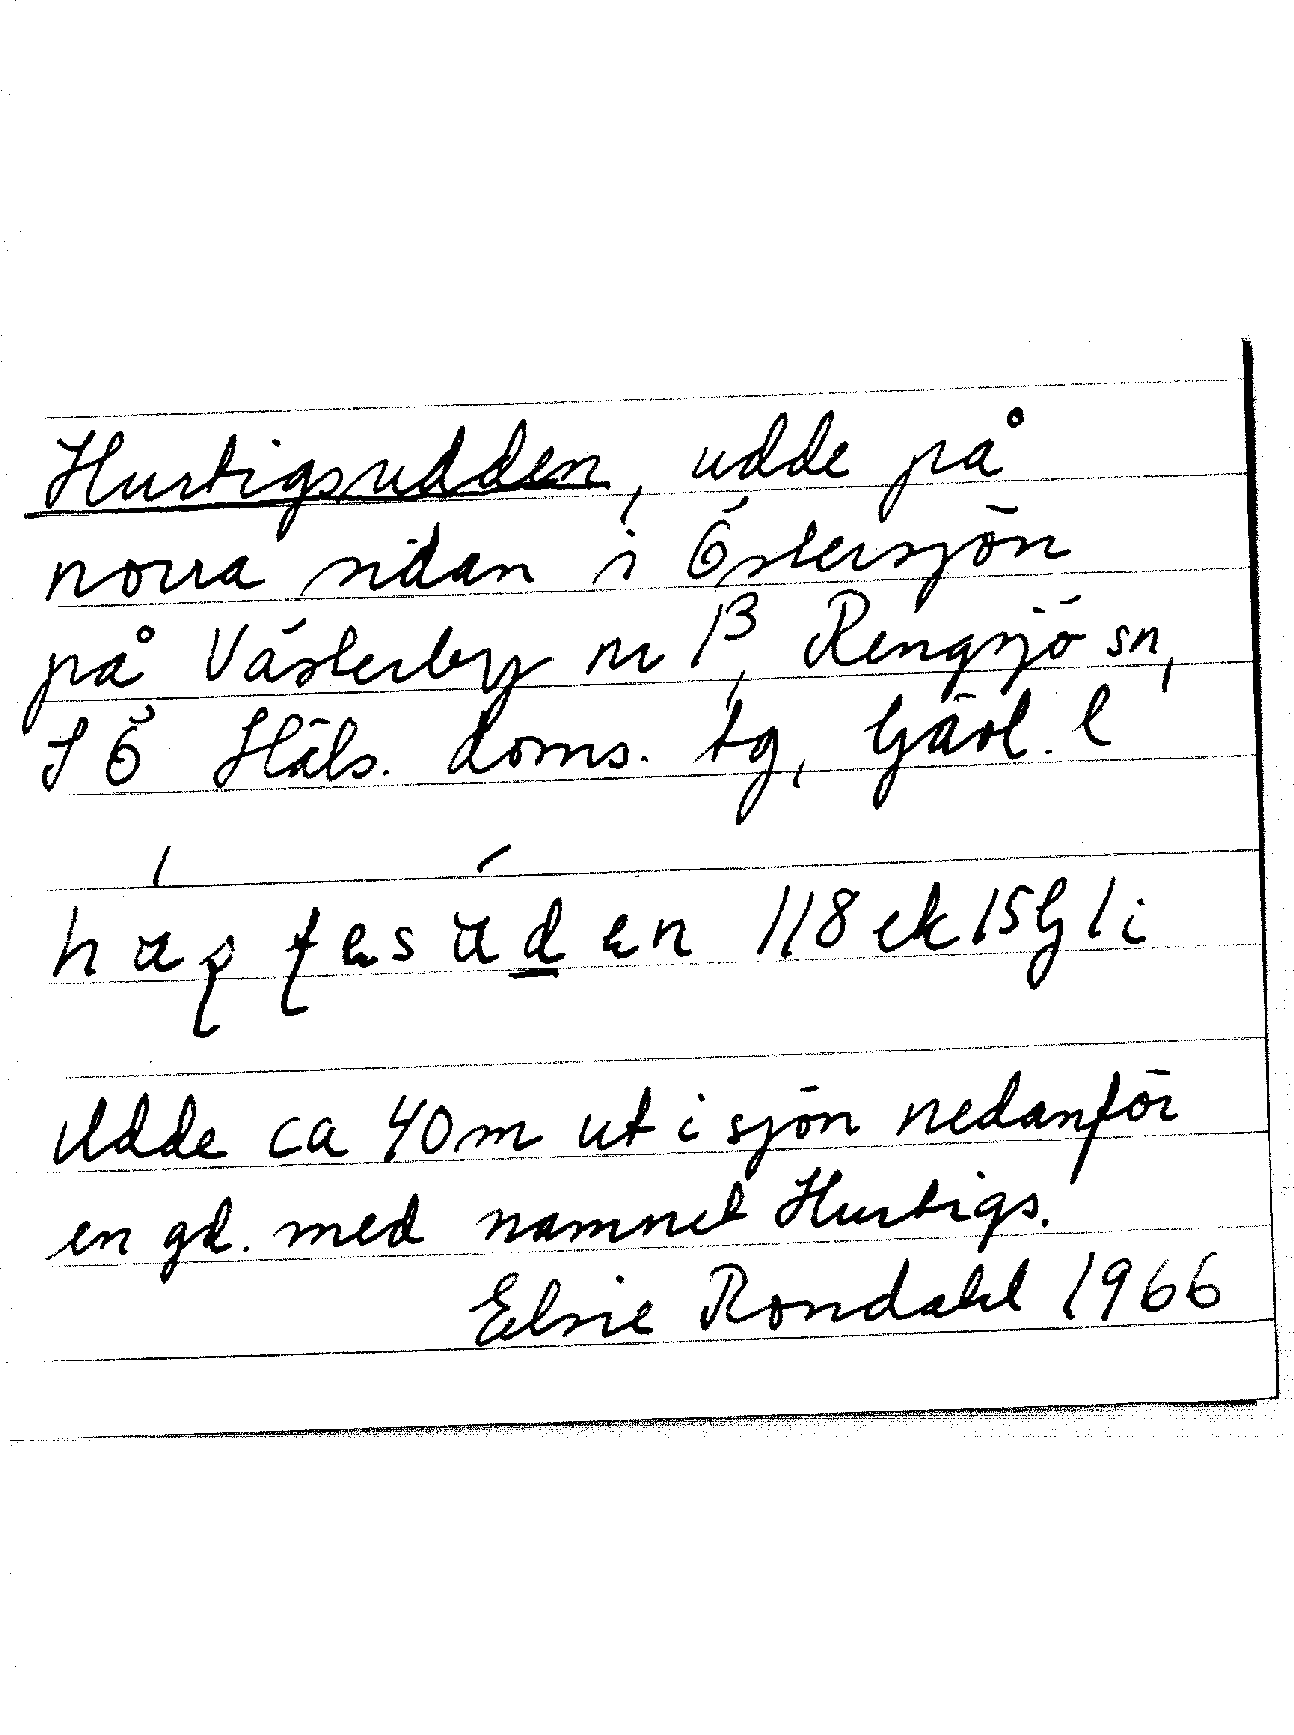 Hurtigsudden, udde på
norra sidan i Östersjön
på Västerby nr 1³, Rengsjö sn,
SÖ Häls. doms. tg, Gävl. l
118 ek 15 Gj 1 i
Udde ca 40 m ut i sjön nedanför
en gd. med namnet Hurtigs.
Elsie Rondahl 1966